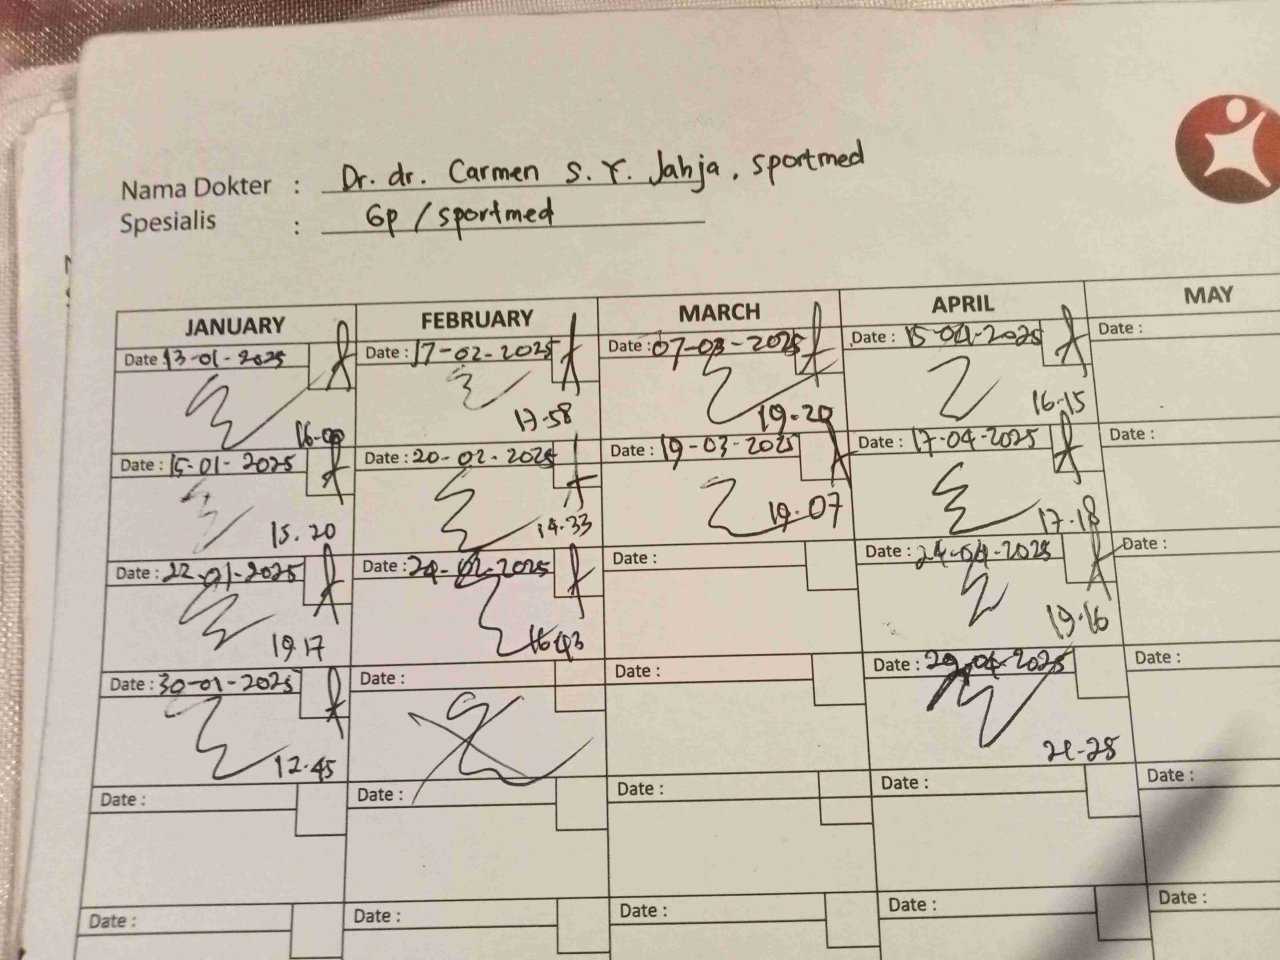 Nama Dokter : Dr. dr. Carmen S. Y. Jahja, sportmed
Spesialis : Gp / sportmed
JANUARY FEBRUARY MARCH APRIL MAY
Date : 13-01-2025 Date : 17-02-2025 Date : 07-03-2025 Date : 15-04-2025 Date :
16-00 17-58 19-20 16-15
Date : 15-01-2025 Date : 20-02-2025 Date : 19-03-2025 Date : 17-04-2025 Date :
15.20 14.33 19.07 17-18
Date : 22-01-2025 Date : 24-02-2025 Date : Date : 24-04-2025 Date :
19 17 16 43 19-16
Date : 30-01-2025 Date : Date : Date : 29-04-2025 Date :
12.45
Date : Date : Date : Date : Date :
Date : Date : Date : Date : Date :